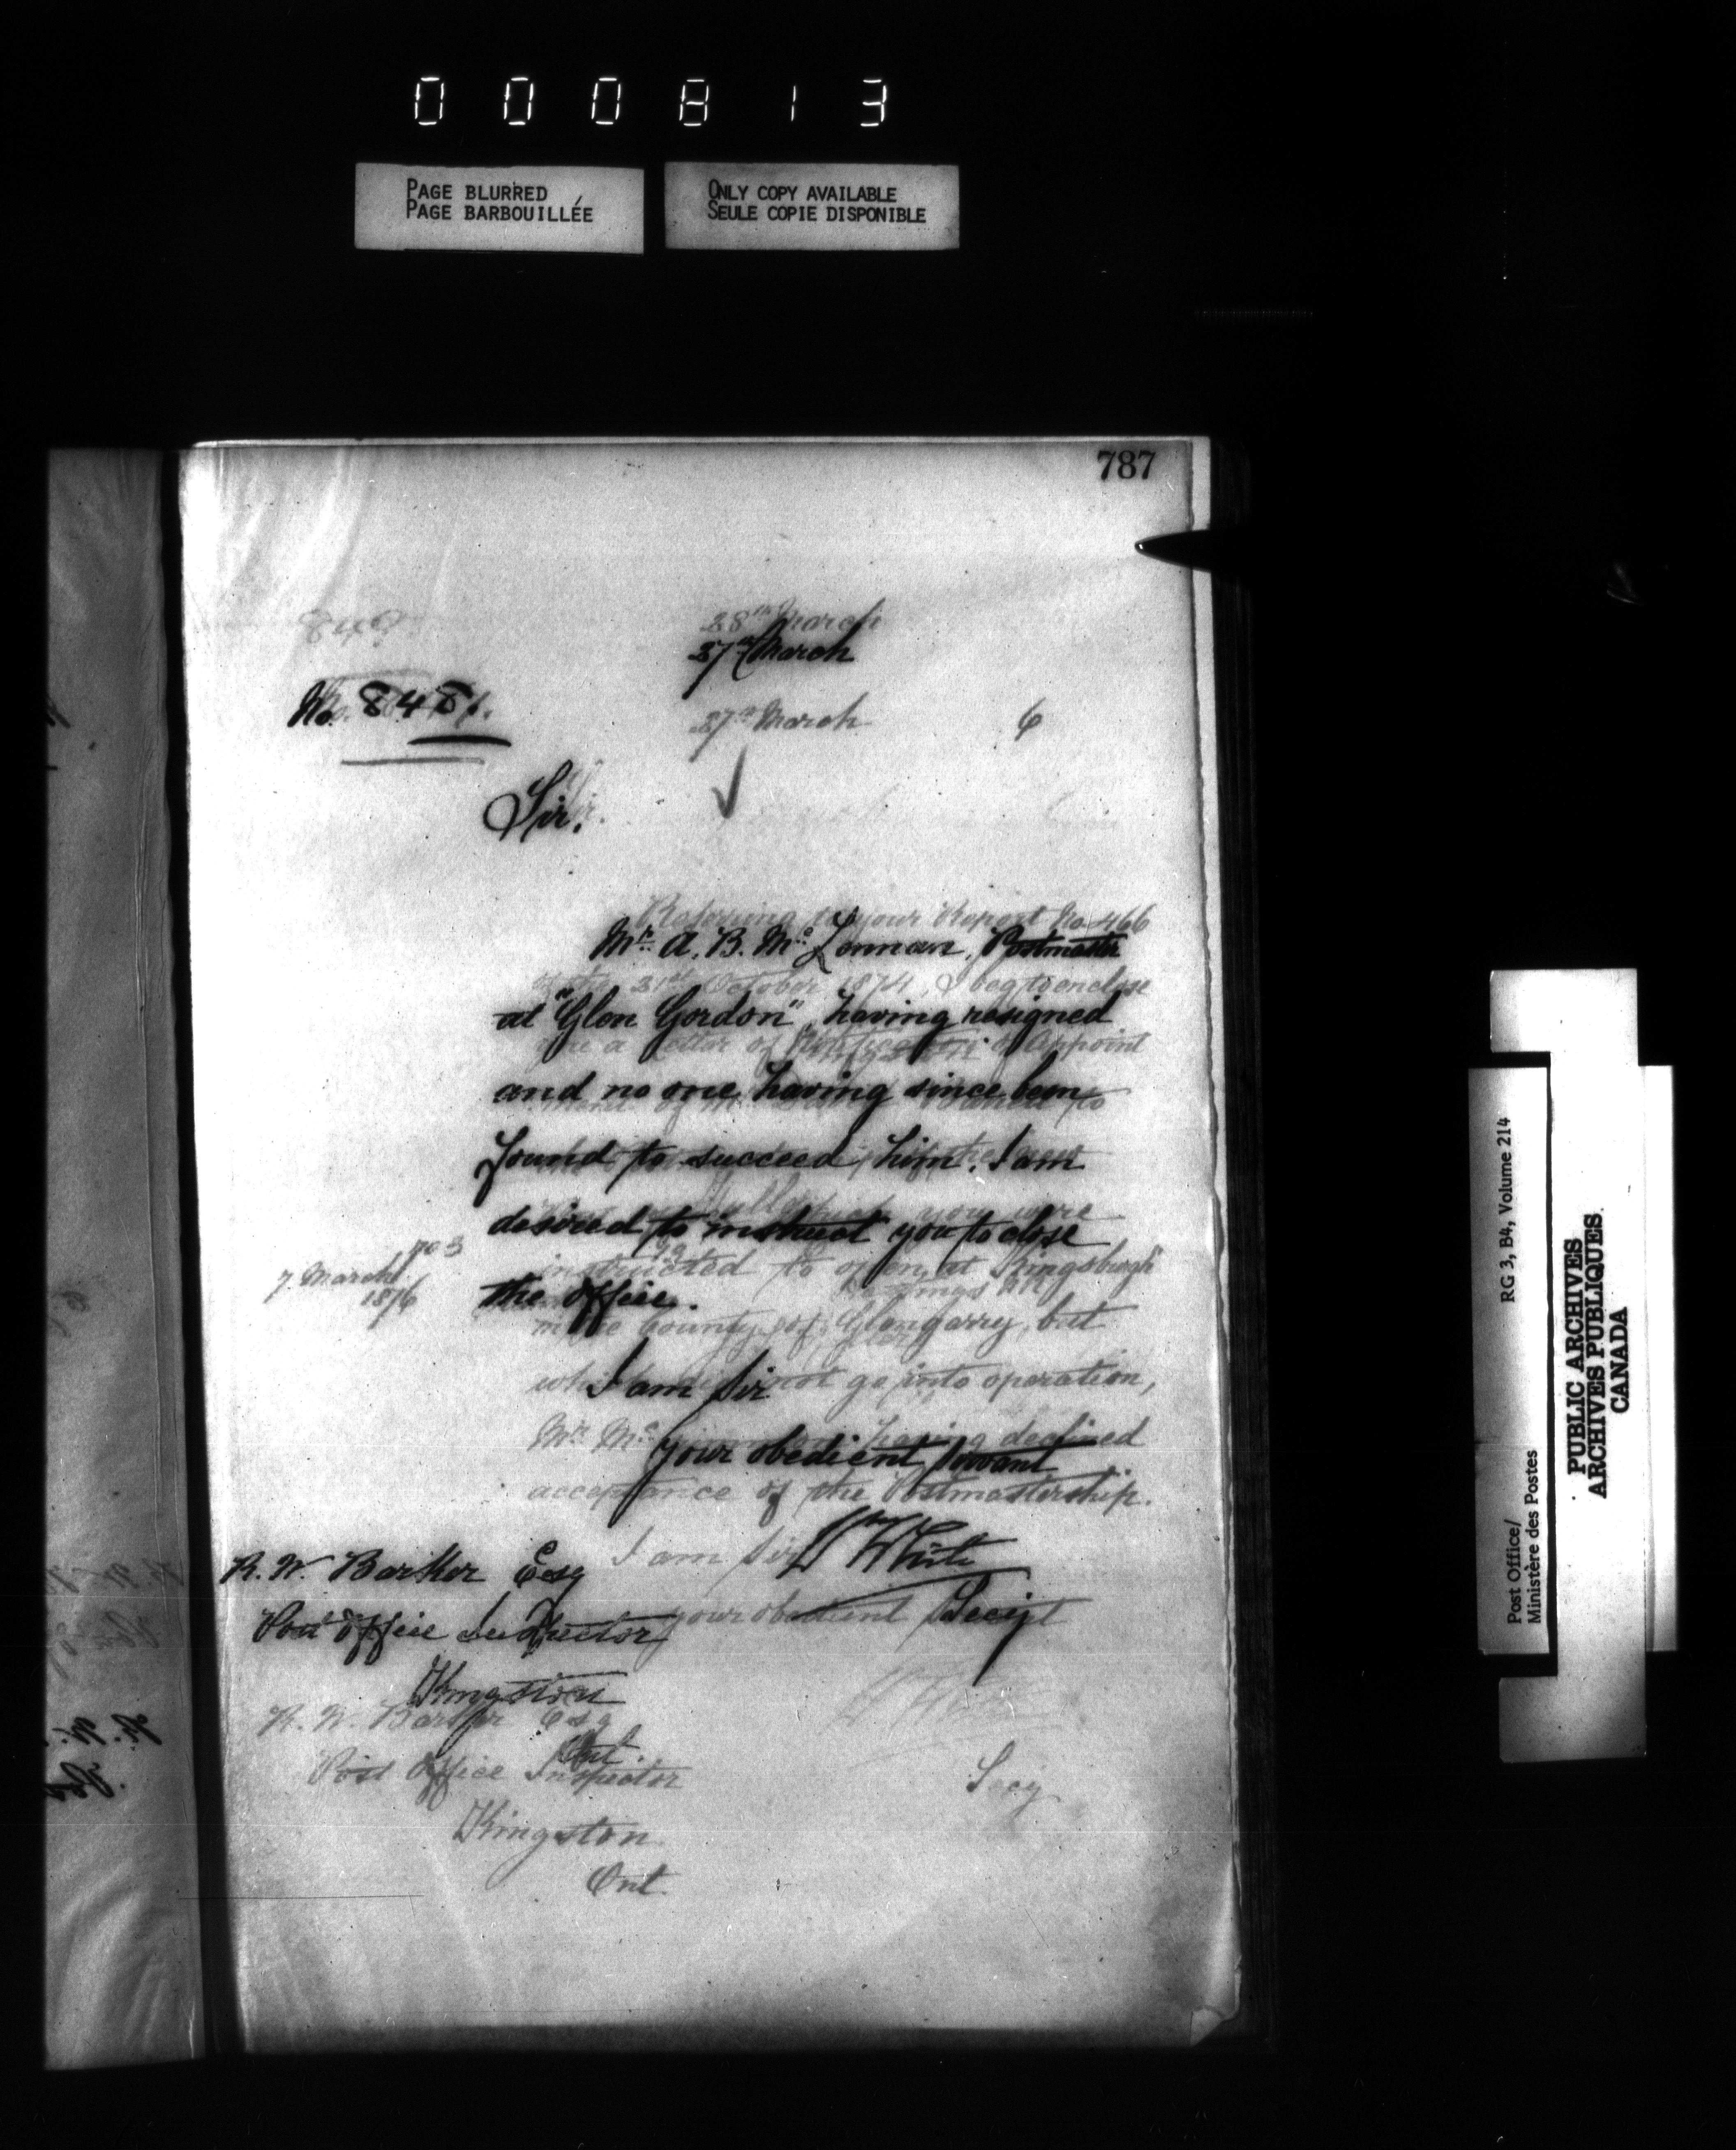 000813
PAGE BLURRED
PAGE BARBOUILLÉE
ONLY COPY AVAILABLE
SEULE COPIE DISPONIBLE
787
28th March
27th March
No. 8481.
27th March 6
Sir.
Referring to your Report No. 466
Mr. A. B. McLennan, Postmaster
21st October 1874, I beg to enclose
at "Glen Gordon", having resigned
a Letter of Notification of Appoint
and no one having since been
found to succeed him. I am
which you were
desired to instruct you to close
no 3
7 March
1876
instructed to open at Kingsburgh
the office.
in the County of Glengarry, but
I am Sir
not go into operation,
Mr. Mc having declined
your obedient servant
acceptance of the Postmastership.
I am Sir
W White
R. W. Barker Esq
your obedient
Secy
Post Office Inspector
Kingston
R. W. Barker Esq
Ont.
Post Office Inspector
Secy
Kingston
Ont.
RG 3, B4, Volume 214
Post Office/
Ministère des Postes
PUBLIC ARCHIVES
ARCHIVES PUBLIQUES
CANADA